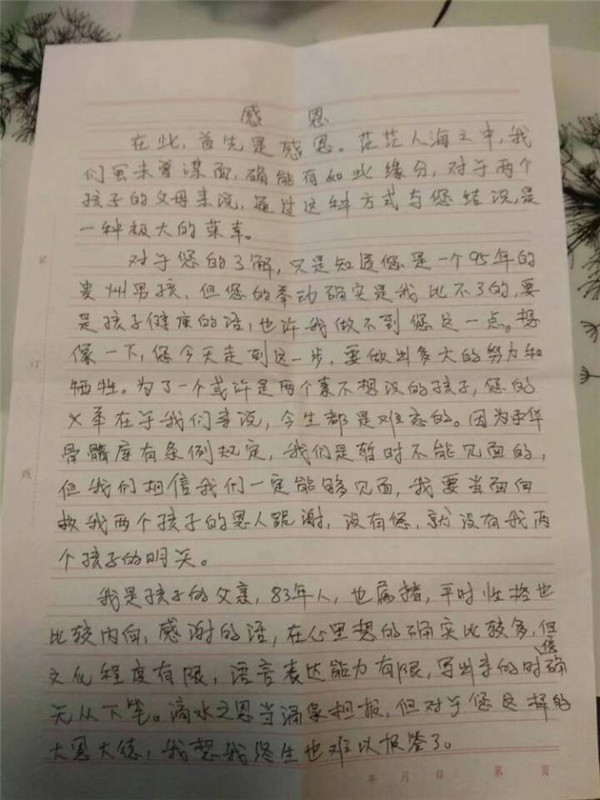 感恩
在此,首先是感恩。茫茫人海之中,我
们虽未曾谋面,确能有如此缘分,对于两个
孩子的父母来说,通过这种方式与您结识,是
一种极大的荣幸。
对于您的了解,只是知道您是一个95年的
贵州男孩,但您的举动确实是我比不了的,要
是孩子健康的话,也许我做不到您这一点。想
像一下,您今天走到这一步,要做出多大的努力和
牺牲。为了一个或许是两个素不相识的孩子,您的
义举在于我们来说,今生都是难忘的。因为中华
骨髓库有条例规定,我们是暂时不能见面的,
但我们相信我们一定能够见面,我要当面向
救我两个孩子的恩人跪谢,没有您,就没有我两
个孩子的明天。
我是孩子的父亲,83年人,也属猪,平时性格也
比较内向,感谢的话,在心里想的确实比较多,但
文化程度有限,语言表达能力有限,写出来的时候确
无从下笔。滴水之恩当涌泉相报,但对于您这样的
大恩大德,我想我终生也难以报答了。
年 月 日 第 页
订
线